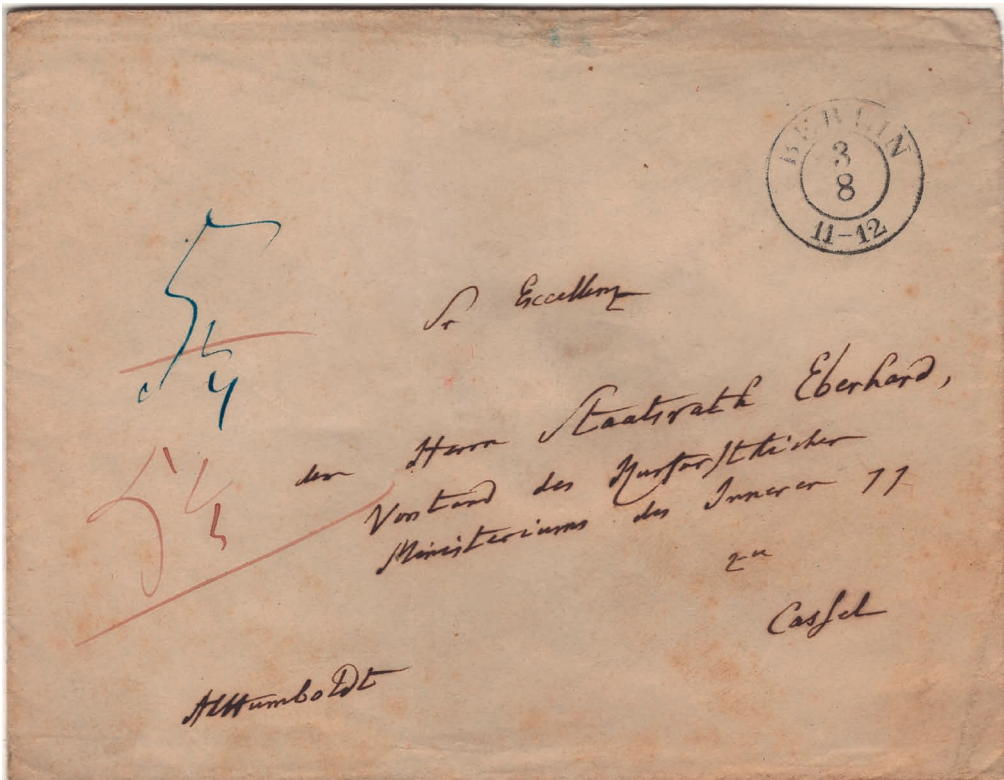 BERLIN
3
8
11-12
Sr Excellenz
den Herrn Staatsrath Eberhard,
Vorstand des Kurfürstlichen
Ministeriums des Inneren
zu
Cassel
AlHumboldt
5